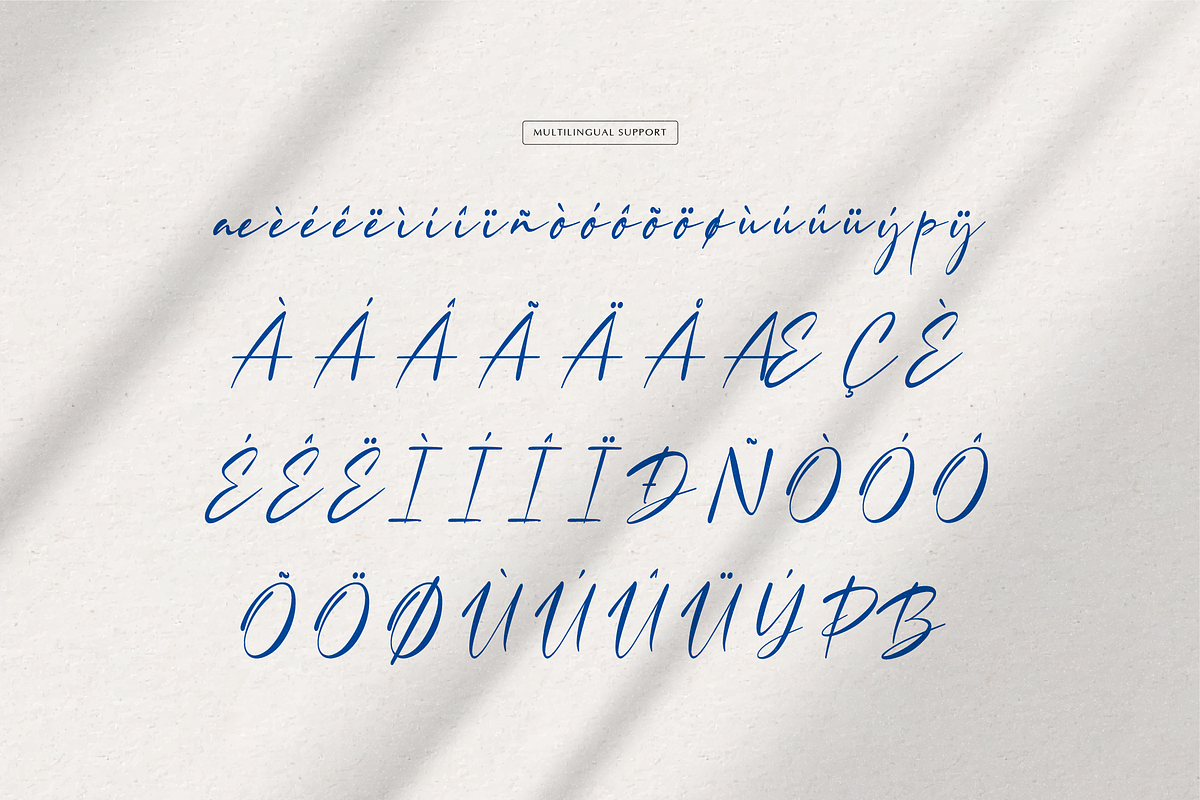 MULTILINGUAL SUPPORT
æèéêëìíîïñòóôõöøùúûüýþÿ
ÀÁÂÃÄÅÆÇÈ
ÉÊËÌÍÎÏÐÑÒÓÔ
ÕÖØÙÚÛÜÝÞB